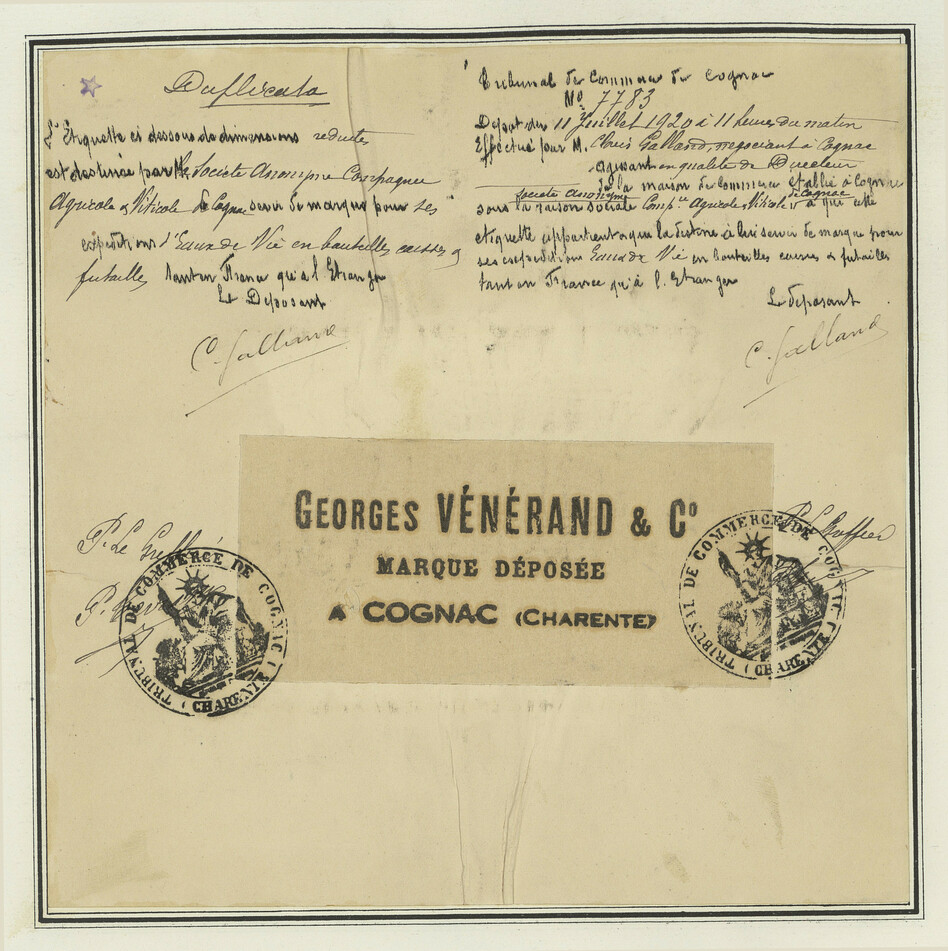 Duplicata
L'Etiquette ci dessous de dimensions reduites
est destinée par la Societe Anonyme Compagnie
Agricole & Viticole de Cognac servir de marque pour ses
expeditions d'Eaux de Vie en bouteilles caisses &
futailles tant en France qu'a l'Etranger
Le Deposant
C. Galland
Tribunal de Commerce de Cognac
No 7783
Depot du 11 Juillet 1920 à 11 heures du matin
Effectué par M. Galland, negociant à Cognac
agissant en qualité de Directeur
de la maison de Commerce etablie à Cognac
societe anonyme de Cognac
sous la raison sociale Compie Agricole & Viticole à qui cette
etiquette appartient & qui la destine à lui servir de marque pour
ses expeditions Eaux de Vie en bouteilles caisses & futailles
tant en France qu'à l'Etranger
Le deposant
C. Galland
GEORGES VÉNÉRAND & Co
MARQUE DÉPOSÉE
A COGNAC (CHARENTE)
P. Le Greffier
TRIBUNAL DE COMMERCE DE COGNAC
(CHARENTE)
P. Le Greffier
TRIBUNAL DE COMMERCE DE COGNAC
(CHARENTE)